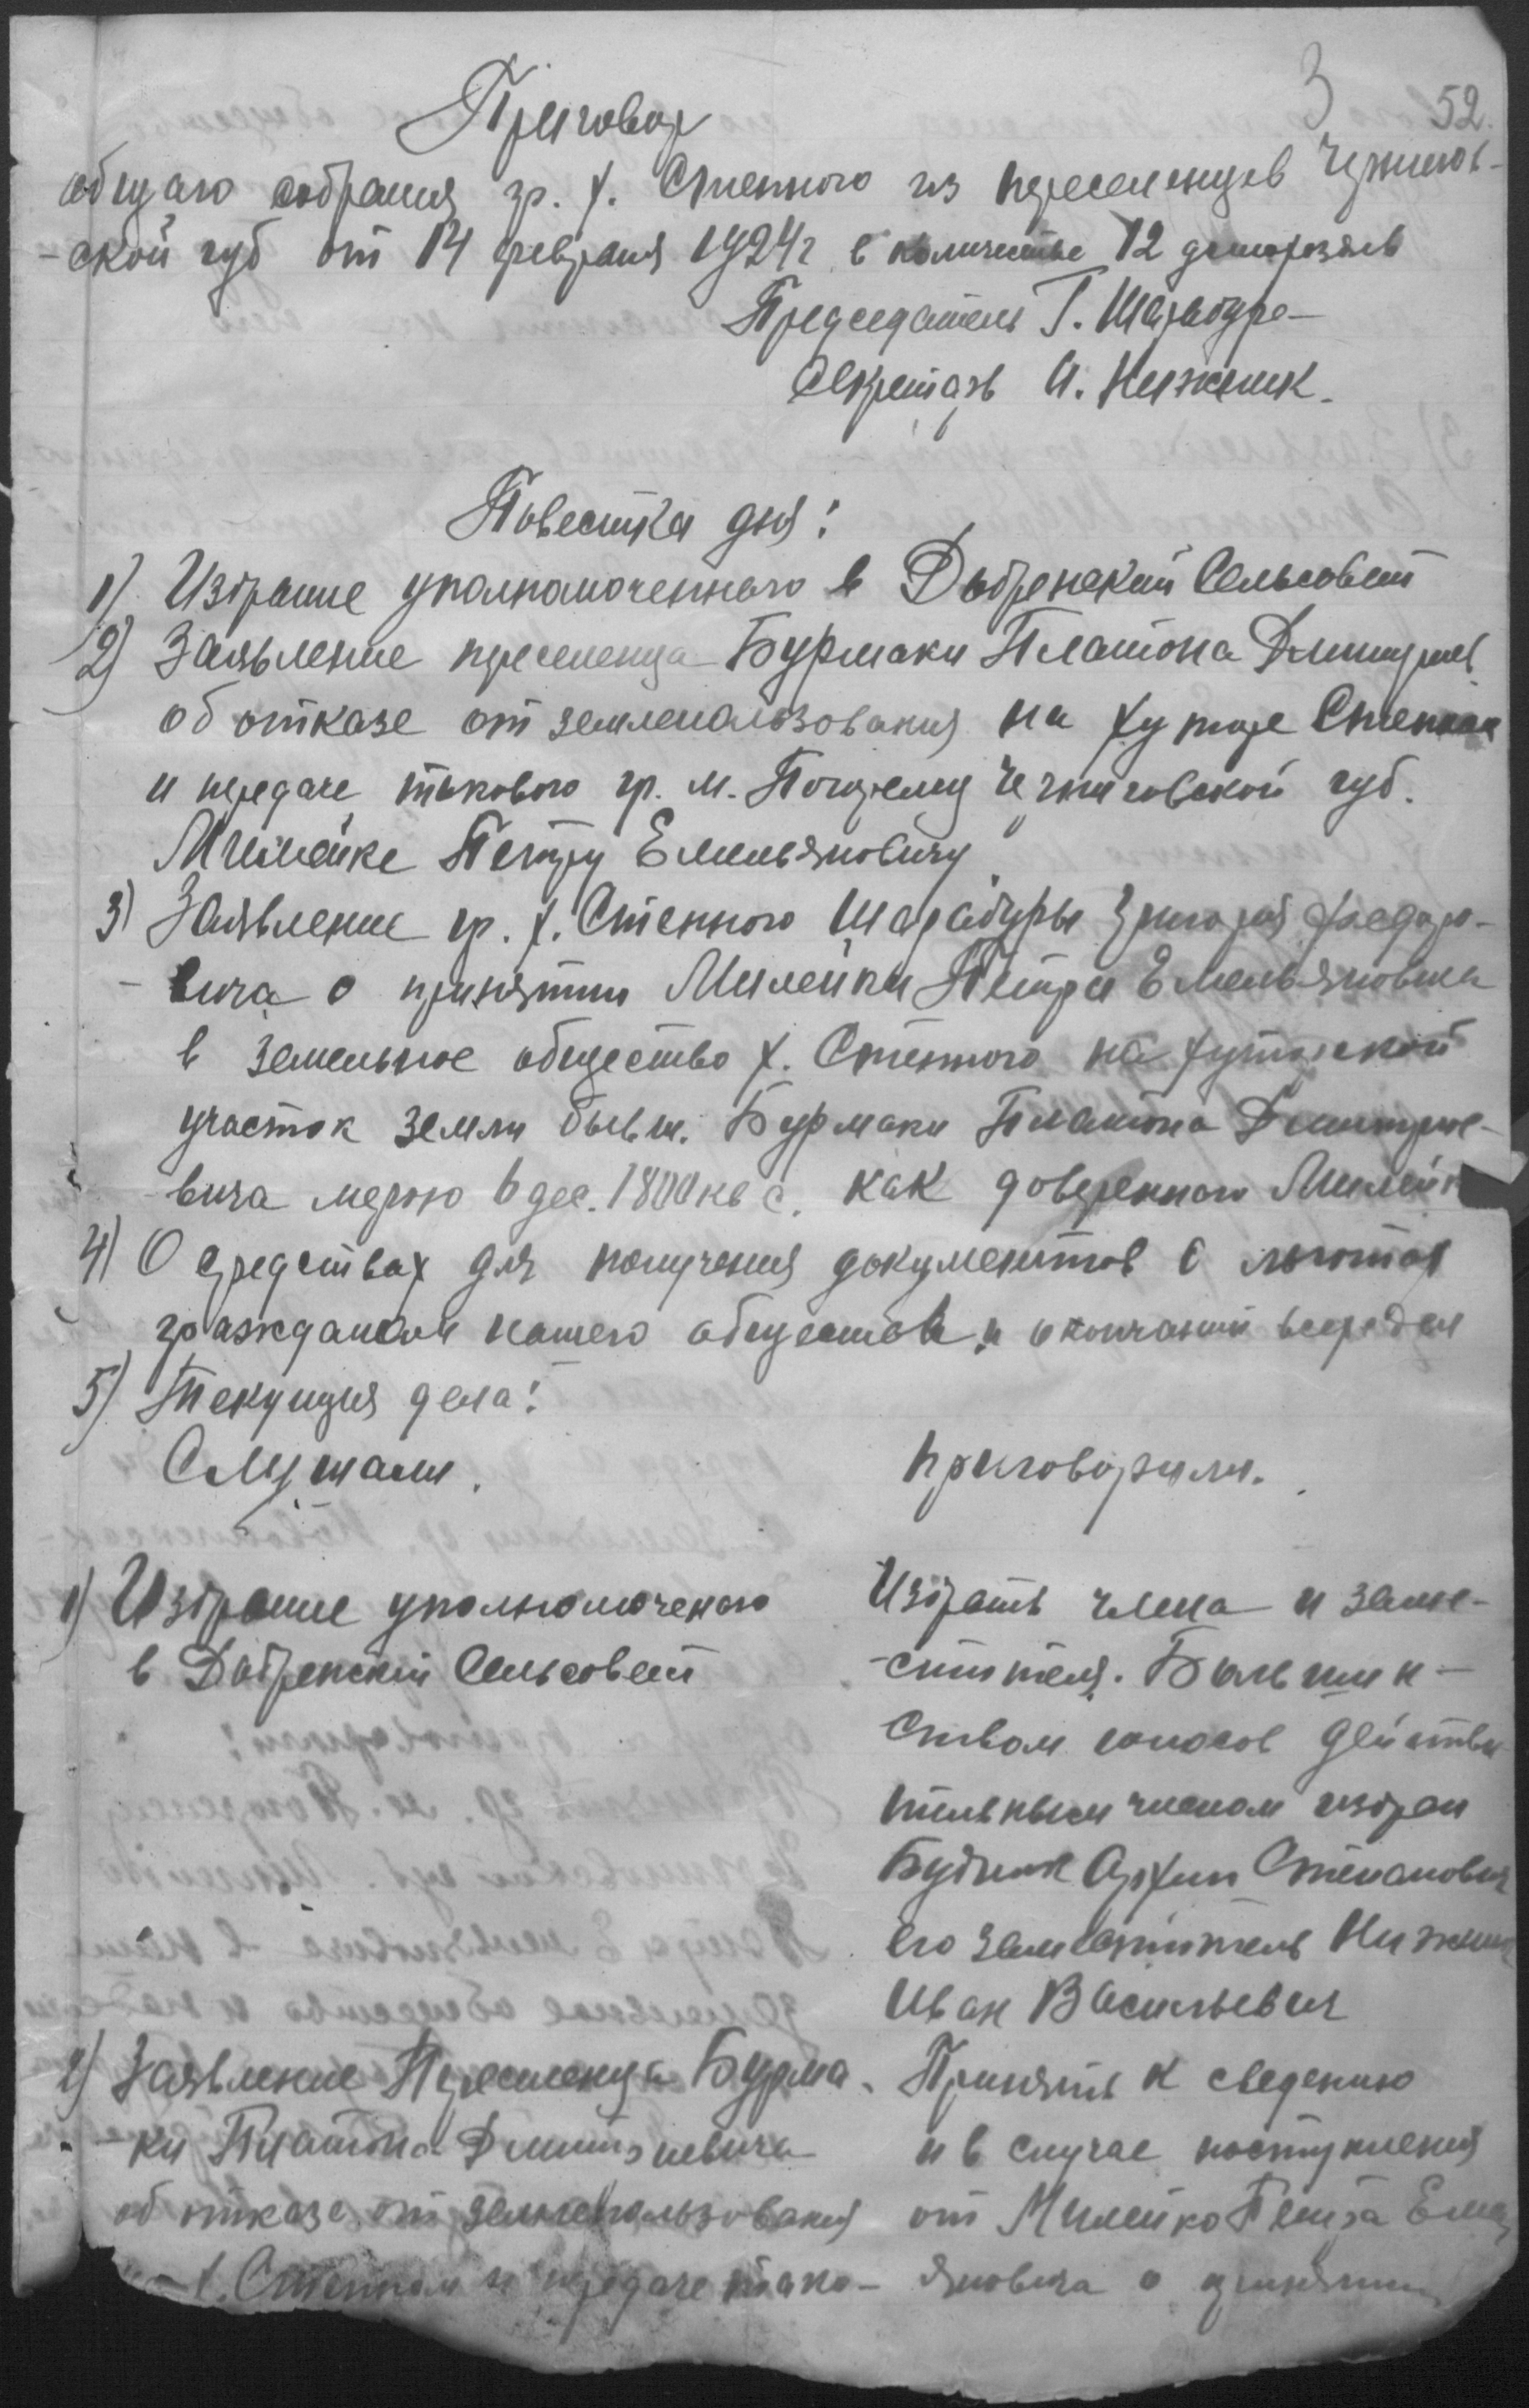 3 52.
Приговор
общаго собрания гр. х. Степного из переселенцев Чернигов-
-ской губ от 14 февраля 1924 г. в количестве 12 домохозяев
Председатель Г. Шарабура
Секретарь И. Нижник.
Повестка дня:
1) Избрание уполномоченного в Добренский Сельсовет
2) Заявление переселенца Бурмаки Платона Дмитриев.
об отказе от землепользования на хуторе Степном
и передаче такового гр. м. Погребки Черниговской губ.
Милейке Петру Емельяновичу
3) Заявление гр. х. Степного Шарабуры Григория Федоро-
-вича о принятии Милейки Петра Емельяновича
в земельное общество х. Степного на хуторской
участок земли бывш. Бурмаки Платона Дмитрие-
вича мерою 6 дес. 1800 кв с. как доверенного Милейк
4) О средствах для получения документов о льготах
гражданам нашего общества и окончании
5) Текущия дела:
Слушали. Приговорили.
1) Избрание уполномоченого
в Добренский Сельсовет
Избрать члена и заме-
-стителя. Большин-
ством голосов действи
тельным членом избран
Будник Архип Степанович
его заместитель Нижник
Иван Васильевич
2) Заявление Переселенца Бурма-
-ки Платона Дмитриевича
об отказе от землепользования
х. Степном и передаче тако-
Принять к сведению
и в случае поступления
от Милейко Петра Емель
яновича о принятии